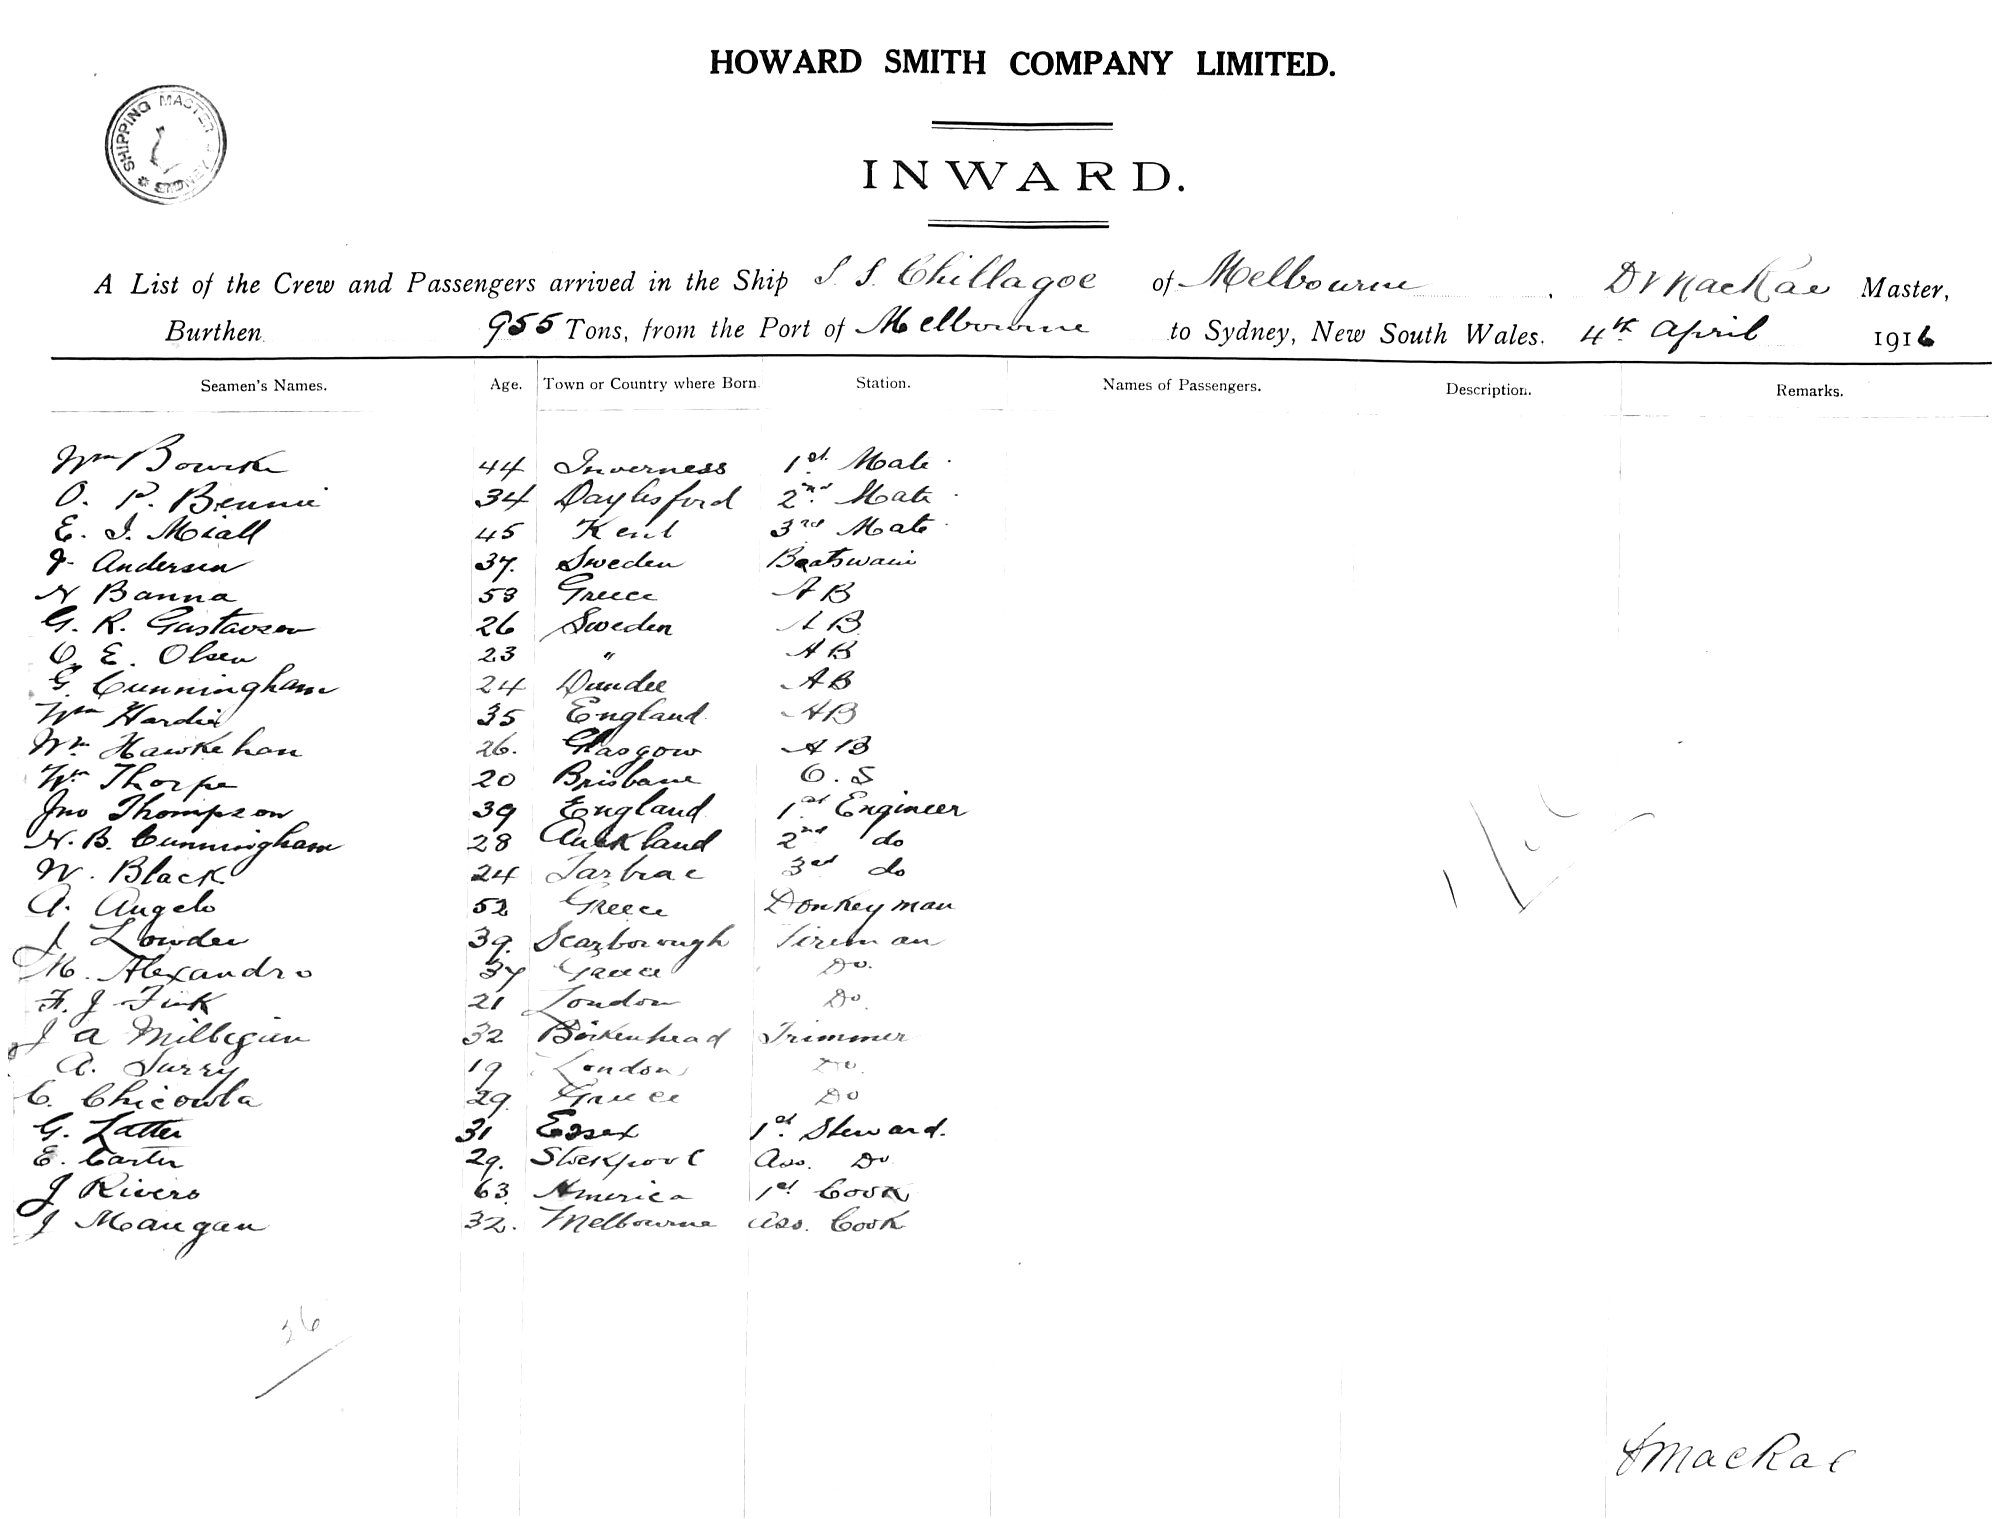 HOWARD SMITH COMPANY LIMITED.
SHIPPING MASTER SYDNEY
INWARD.
A List of the Crew and Passengers arrived in the Ship S. S. Chillagoe of Melbourne, D MacRae Master,
Burthen 955 Tons, from the Port of Melbourne to Sydney, New South Wales. 4th April 1916
Seamen's Names. Age. Town or Country where Born. Station. Names of Passengers. Description. Remarks.
Wm Bowrke 44 Inverness 1st Mate
O. P. Bennie 34 Daylesford 2nd Mate
E. J. Miall 45 Kent 3rd Mate
J. Andersen 37. Sweden Boatswain
N Banna 53 Greece A B
G. R. Gustavsen 26 Sweden A B
O. E. Olsen 23 " A B
G. Cunningham 24 Dundee A B
Wm Hardie 35 England A B
Wm Hawkehan 26. Glasgow A B
Wm Thorpe 20 Brisbane O. S
Jno Thompson 39 England 1st Engineer
N. B. Cunningham 28 Auckland 2nd do
W. Black 24 3rd do
A. Angelo 52 Greece Donkeyman
J Lowdee 39. Scarborough Fireman
M. Alexandro 37 Greece Do.
F. J Fink 21 London Do.
J A Milligan 32 Birkenhead Trimmer
A. Surry 19 London Do.
C. Chicowla 29. Greece Do
G. Latter 31 Essex 1st Steward.
E. Carter 29. Stockport Ass. Do
J Rivero 63. America 1st Cook
J Mangan 32. Melbourne Ass. Cook
26
D MacRae